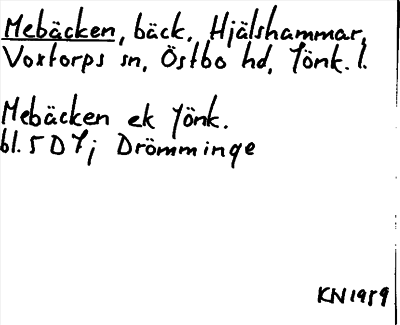 Mebäcken, bäck. Hjälshammar,
Voxtorps sn, Östbo hd, Jönk. l.
Mebäcken ek Jönk.
bl. 5 D 7 j Drömminge
KN 1959